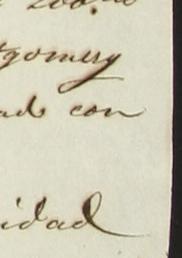 tgomery
ad con
idad